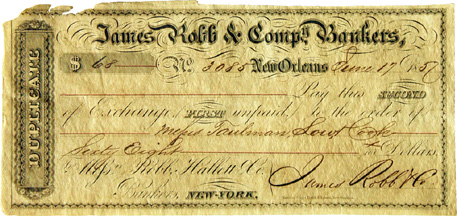 DUPLICATE
James Robb & Compy. Bankers,
$ 68 No. 3085 New Orleans June 17 1857
Pay this SECOND
of Exchange FIRST unpaid, To the order of
Messrs
Sixty Eight Dollars,
To Messrs Robb, Hallett & Co.
Bankers, NEW-YORK. James Robb & Co